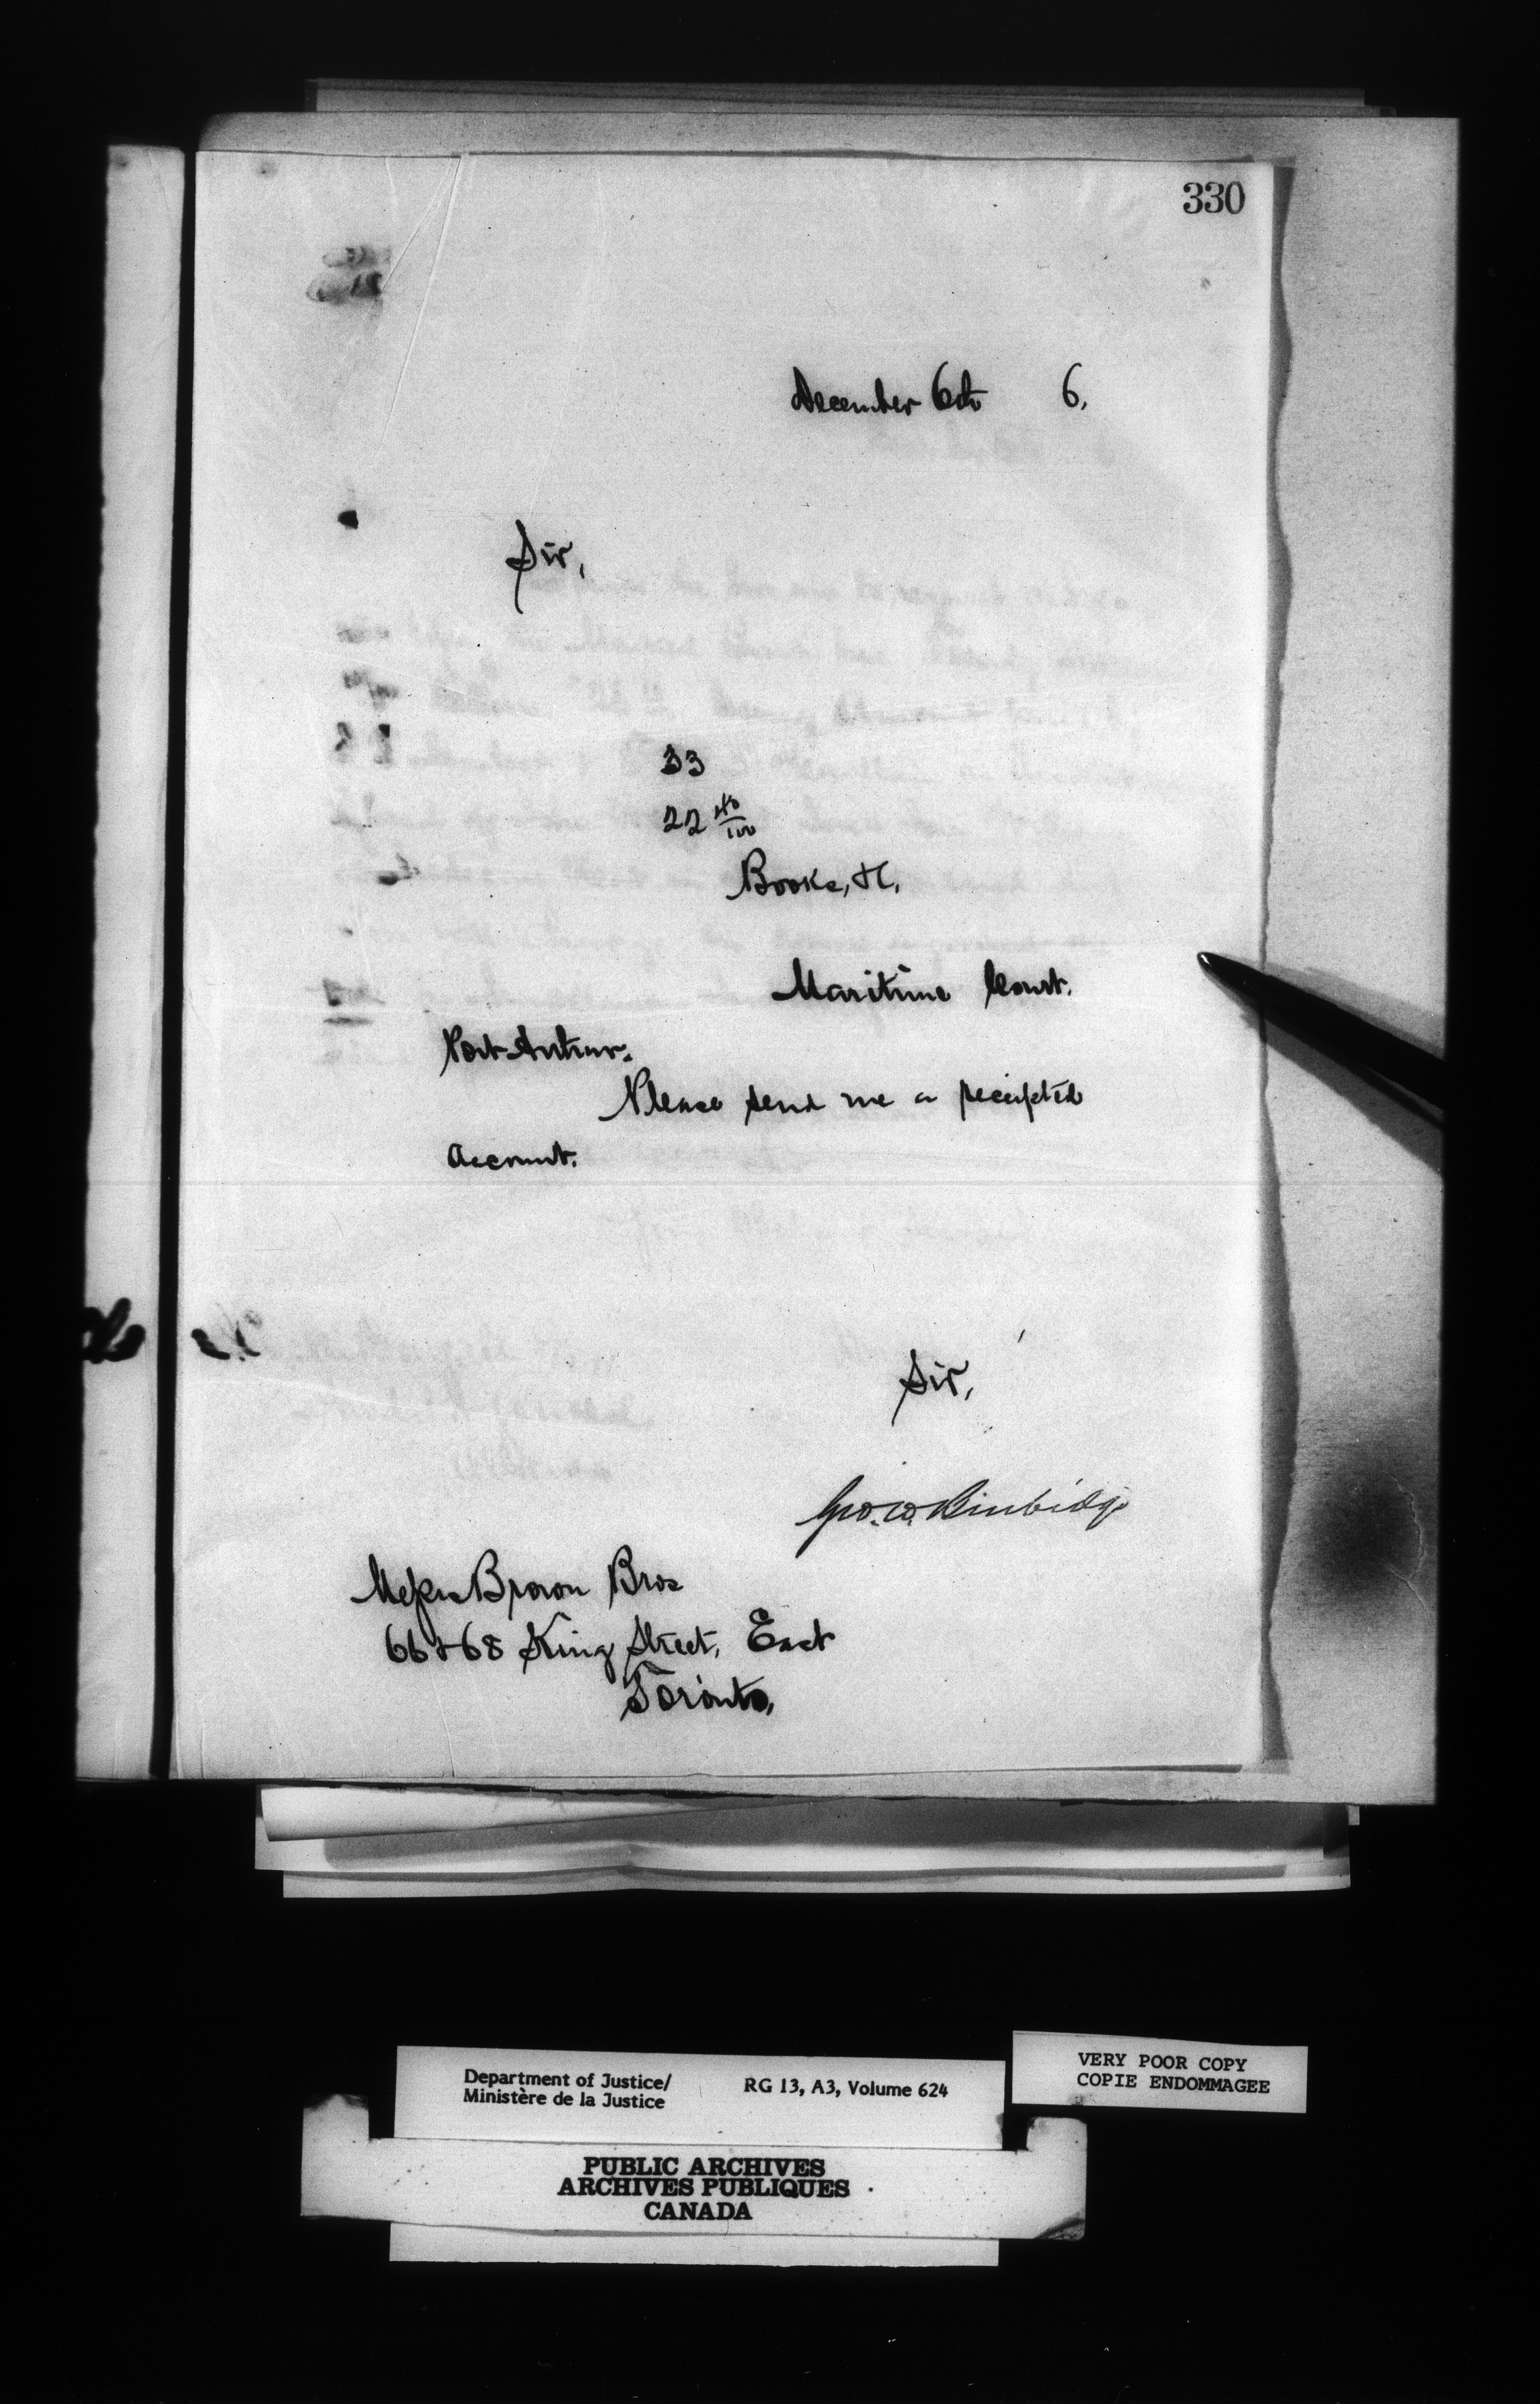 330
December 6th 6.
Sir,
33
22 40/100
Books, &c,
Maritime Court.
Port Arthur.
Please send me a receipted
account.
Sir,
Geo. W. Burbidge
Messrs Brown Bros
66 & 68 King Street, East
Toronto,
Department of Justice/
Ministère de la Justice
RG 13, A3, Volume 624
VERY POOR COPY
COPIE ENDOMMAGEE
PUBLIC ARCHIVES
ARCHIVES PUBLIQUES
CANADA